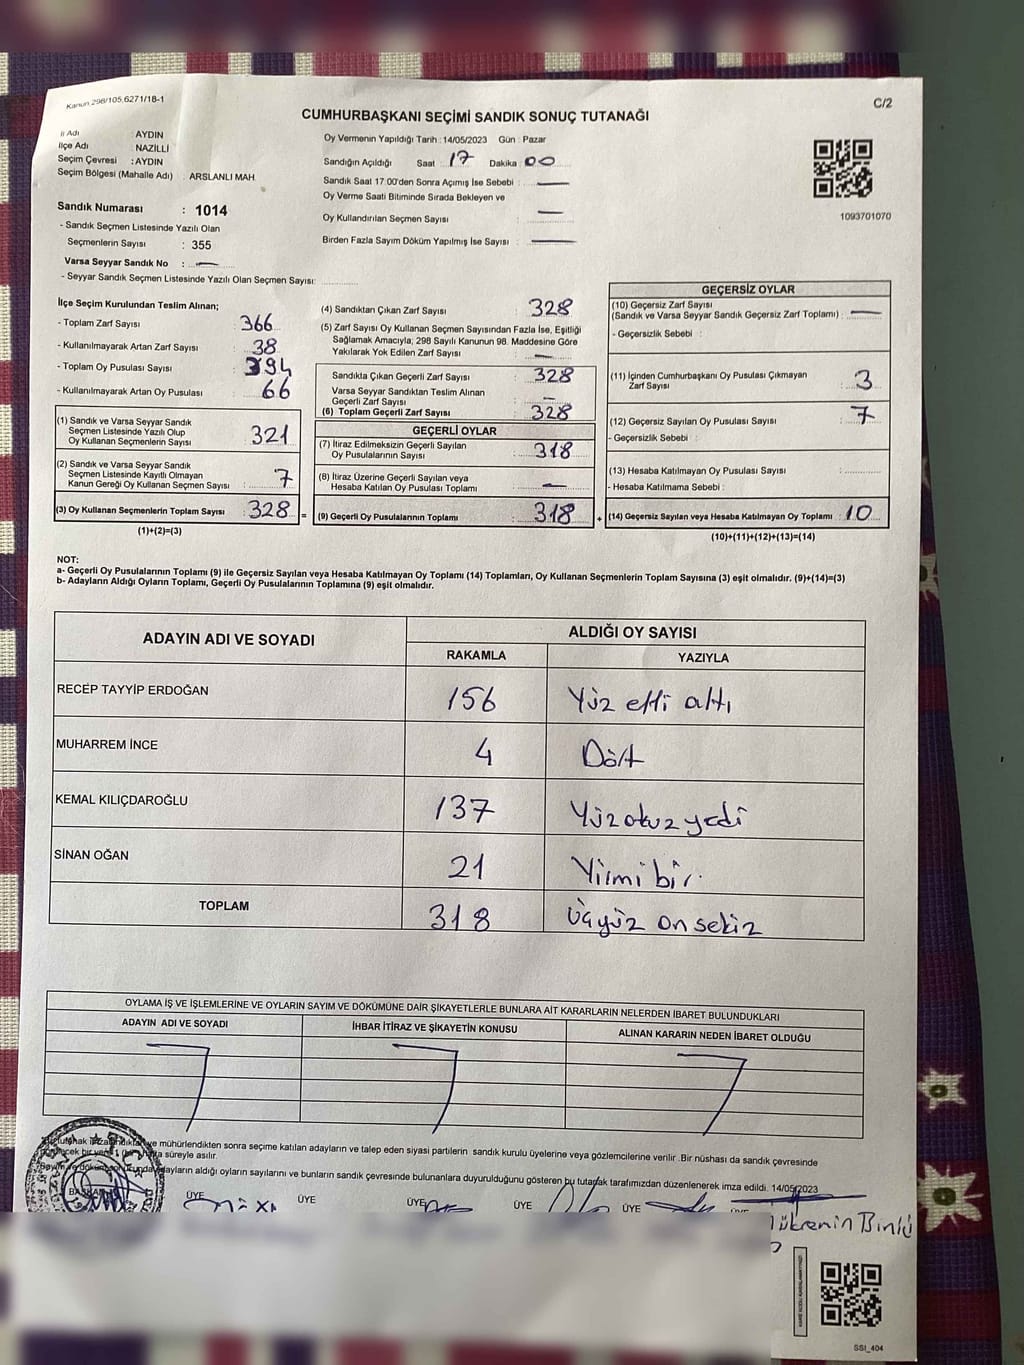 Kanun.298/105,6271/18-1
C/2
CUMHURBAŞKANI SEÇİMİ SANDIK SONUÇ TUTANAĞI
İl Adı : AYDIN
İlçe Adı : NAZİLLİ
Seçim Çevresi : AYDIN
Seçim Bölgesi (Mahalle Adı) : ARSLANLI MAH.
Sandık Numarası : 1014
- Sandık Seçmen Listesinde Yazılı Olan
Seçmenlerin Sayısı : 355
Varsa Seyyar Sandık No : —
- Seyyar Sandık Seçmen Listesinde Yazılı Olan Seçmen Sayısı:
Oy Vermenin Yapıldığı Tarih : 14/05/2023 Gün : Pazar
Sandığın Açıldığı Saat : 17 Dakika : 00
Sandık Saat 17:00'den Sonra Açımış İse Sebebi : —
Oy Verme Saati Bitiminde Sırada Bekleyen ve
Oy Kullandırılan Seçmen Sayısı : —
Birden Fazla Sayım Döküm Yapılmış İse Sayısı : —
1093701070
İlçe Seçim Kurulundan Teslim Alınan;
- Toplam Zarf Sayısı : 366
- Kullanılmayarak Artan Zarf Sayısı : 38
- Toplam Oy Pusulası Sayısı : 394
- Kullanılmayarak Artan Oy Pusulası : 66
(1) Sandık ve Varsa Seyyar Sandık
Seçmen Listesinde Yazılı Olup
Oy Kullanan Seçmenlerin Sayısı : 321
(2) Sandık ve Varsa Seyyar Sandık
Seçmen Listesinde Kayıtlı Olmayan
Kanun Gereği Oy Kullanan Seçmen Sayısı : 7
(3) Oy Kullanan Seçmenlerin Toplam Sayısı : 328 =
(1)+(2)=(3)
(4) Sandıktan Çıkan Zarf Sayısı : 328
(5) Zarf Sayısı Oy Kullanan Seçmen Sayısından Fazla İse, Eşitliği
Sağlamak Amacıyla; 298 Sayılı Kanunun 98. Maddesine Göre
Yakılarak Yok Edilen Zarf Sayısı : —
Sandıkta Çıkan Geçerli Zarf Sayısı : 328
Varsa Seyyar Sandıktan Teslim Alınan
Geçerli Zarf Sayısı : —
(6) Toplam Geçerli Zarf Sayısı : 328
GEÇERLİ OYLAR
(7) İtiraz Edilmeksizin Geçerli Sayılan
Oy Pusulalarının Sayısı : 318
(8) İtiraz Üzerine Geçerli Sayılan veya
Hesaba Katılan Oy Pusulası Toplamı : —
(9) Geçerli Oy Pusulalarının Toplamı : 318 +
GEÇERSİZ OYLAR
(10) Geçersiz Zarf Sayısı
(Sandık ve Varsa Seyyar Sandık Geçersiz Zarf Toplamı) : —
- Geçersizlik Sebebi :
(11) İçinden Cumhurbaşkanı Oy Pusulası Çıkmayan
Zarf Sayısı : 3
(12) Geçersiz Sayılan Oy Pusulası Sayısı : 7
- Geçersizlik Sebebi :
(13) Hesaba Katılmayan Oy Pusulası Sayısı :
- Hesaba Katılmama Sebebi :
(14) Geçersiz Sayılan veya Hesaba Katılmayan Oy Toplamı : 10
(10)+(11)+(12)+(13)=(14)
NOT:
a- Geçerli Oy Pusulalarının Toplamı (9) ile Geçersiz Sayılan veya Hesaba Katılmayan Oy Toplamı (14) Toplamları, Oy Kullanan Seçmenlerin Toplam Sayısına (3) eşit olmalıdır. (9)+(14)=(3)
b- Adayların Aldığı Oyların Toplamı, Geçerli Oy Pusulalarının Toplamına (9) eşit olmalıdır.
ADAYIN ADI VE SOYADI
ALDIĞI OY SAYISI
RAKAMLA YAZIYLA
RECEP TAYYİP ERDOĞAN 156 Yüz elli altı
MUHARREM İNCE 4 Dört
KEMAL KILIÇDAROĞLU 137 Yüz otuz yedi
SİNAN OĞAN 21 Yirmi bir
TOPLAM 318 Üçyüz on sekiz
OYLAMA İŞ VE İŞLEMLERİNE VE OYLARIN SAYIM VE DÖKÜMÜNE DAİR ŞİKAYETLERLE BUNLARA AİT KARARLARIN NELERDEN İBARET BULUNDUKLARI
ADAYIN ADI VE SOYADI İHBAR İTİRAZ VE ŞİKAYETİN KONUSU ALINAN KARARIN NEDEN İBARET OLDUĞU
ve mühürlendikten sonra seçime katılan adayların ve talep eden siyasi partilerin sandık kurulu üyelerine veya gözlemcilerine verilir .Bir nüshası da sandık çevresinde
süreyle asılır.
adayların aldığı oyların sayılarını ve bunların sandık çevresinde bulunanlara duyurulduğunu gösteren bu tutanak tarafımızdan düzenlenerek imza edildi. 14/05/2023
ÜYE ÜYE ÜYE ÜYE ÜYE
SSI_404